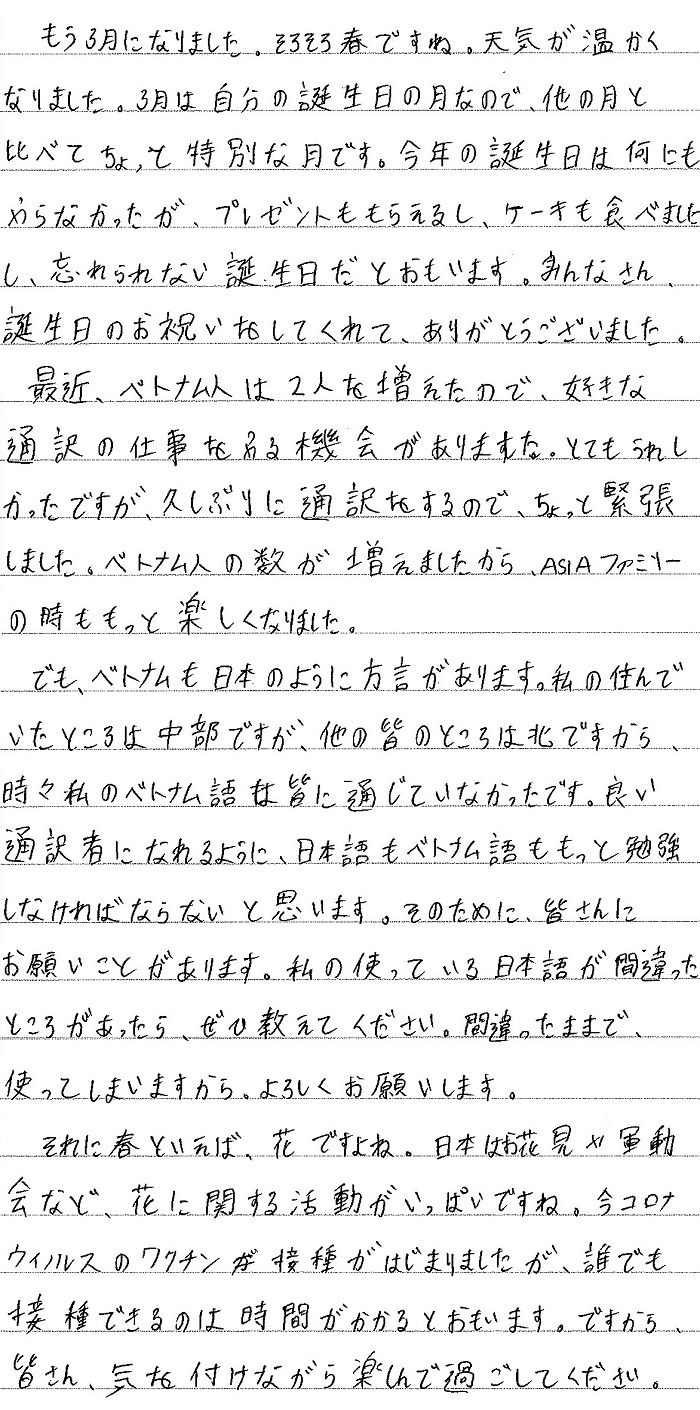 もう3月になりました。そろそろ春ですね。天気が温かく
なりました。3月は自分の誕生日の月なので、他の月と
比べてちょっと特別な月です。今年の誕生日は何にも
やらなかったが、プレゼントももらえるし、ケーキも食べました
し、忘れられない誕生日だとおもいます。みんなさん、
誕生日のお祝いをしてくれて、ありがとうございました。
最近、ベトナム人は2人を増えたので、好きな
通訳の仕事をする機会がありました。とてもうれし
かったですが、久しぶりに通訳をするので、ちょっと緊張
しました。ベトナム人の数が増えましたから、ASIAファミリー
の時ももっと楽しくなりました。
でも、ベトナムも日本のように方言があります。私の住んで
いたところは中部ですが、他の皆のところは北ですから、
時々私のベトナム語は皆に通じていなかったです。良い
通訳者になれるように、日本語もベトナム語ももっと勉強
しなければならないと思います。そのために、皆さんに
お願いことがあります。私の使っている日本語が間違った
ところがあったら、ぜひ教えてください。間違ったままで、
使ってしまいますから。よろしくお願いします。
それに春といえば、花ですよね。日本はお花見や運動
会など、花に関する活動がいっぱいですね。今コロナ
ウィルスのワクチン接種がはじまりましたが、誰でも
接種できるのは時間がかかるとおもいます。ですから、
皆さん、気を付けながら楽しんで過ごしてください。